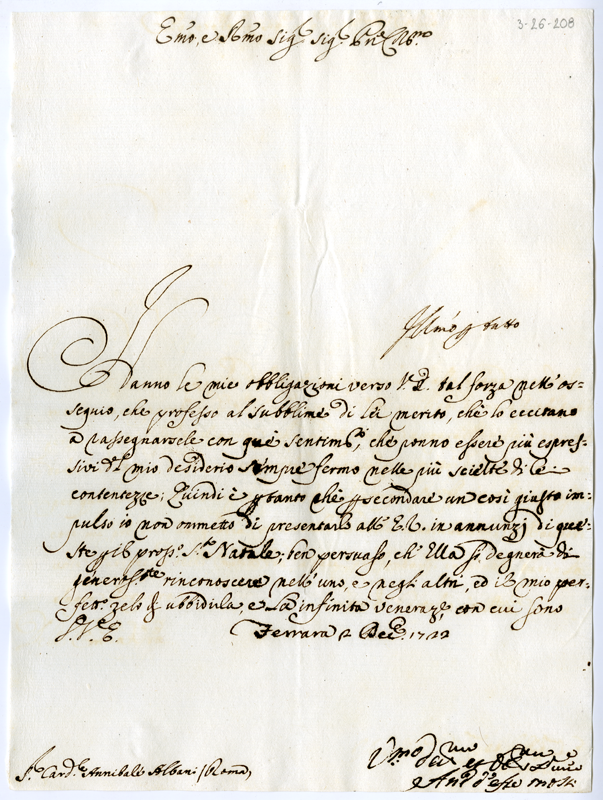 3-26-208
Emo, e Rmo Sigr. Sigr. Prñe
Illmo
Danno le mie obbligazioni verso V. E. tal forza nell' os=
sequio, che professo al subblime di lei merito, che lo eccitano
a rassegnarsele con que' sentimti., che ponno essere più espres-
sivi del mio desiderio sempre fermo nelle più scielte di lei
contentezze; Quindi è ptanto che p secondare un così giusto im-
pulso io non ommetto di presentare all' E. V. in annunzj di que-
ste pil pross.e Ste Natale; ben persuaso, ch' Ella si degnerà di
generoste. rinconoscere nell' uno, e negli altri, ed il mio per-
fetto zelo d' ubbidirla e la infinita veneraze. con cui sono
D. V. E. Ferrara 2 Dece. 1722
Sr. Cardle. Annibale Albani / Roma
Vmo
Mosti